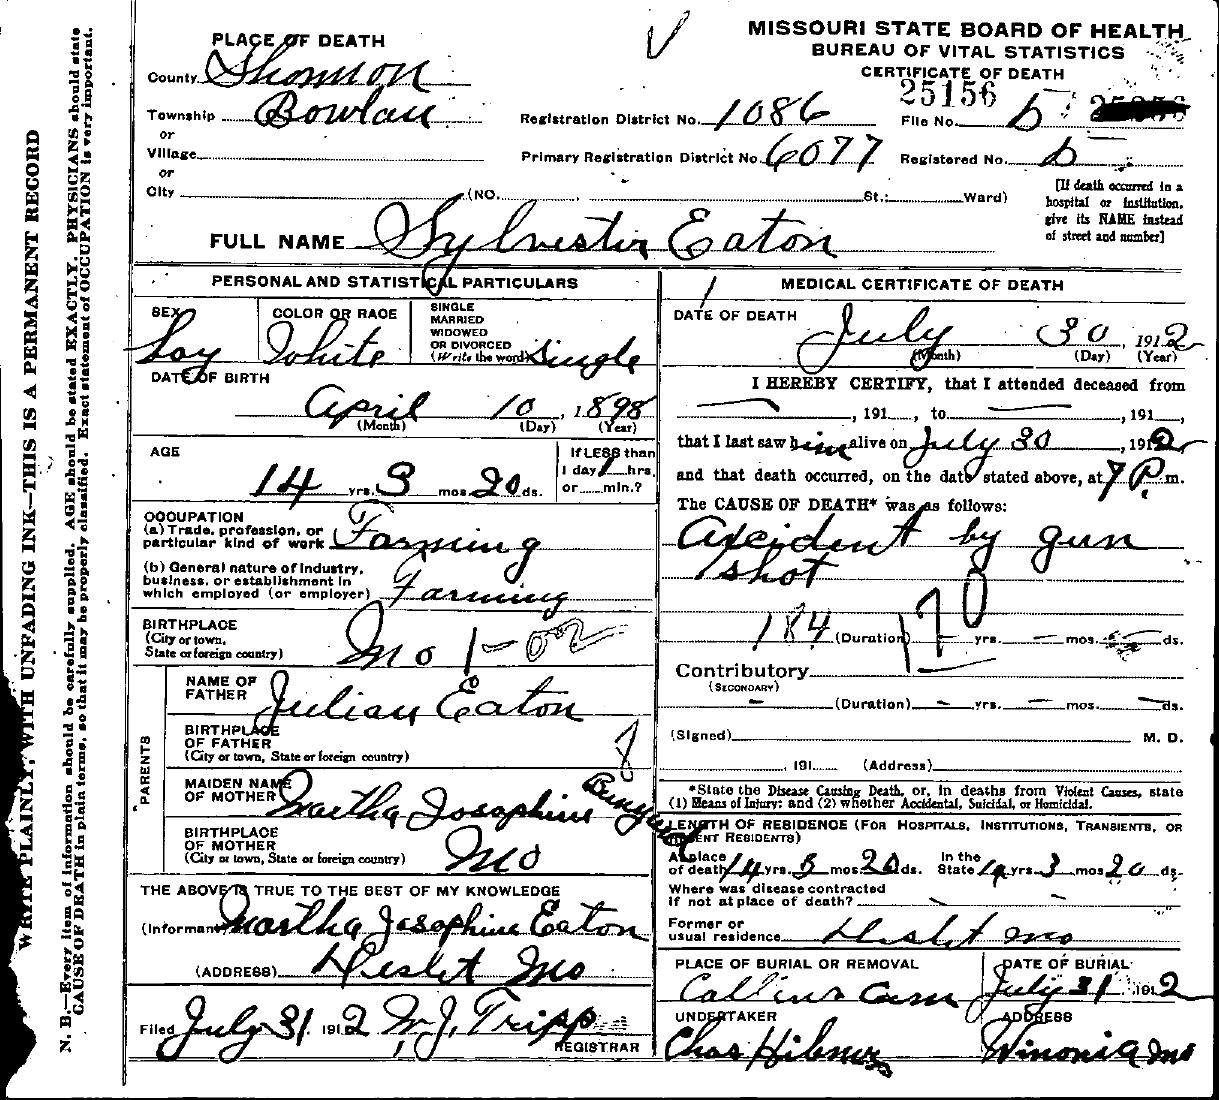 MISSOURI STATE BOARD OF HEALTH
BUREAU OF VITAL STATISTICS
CERTIFICATE OF DEATH
PLACE OF DEATH
County Shannon
Township Bowlan
or
Village
or
City (NO. St.; Ward)
Registration District No. 1086
25156
File No.
Primary Registration District No. 6077
Registered No.
[If death occurred in a
hospital or institution,
give its NAME instead
of street and number]
FULL NAME Sylvester Eaton
PERSONAL AND STATISTICAL PARTICULARS
SEX Boy
COLOR OR RACE White
SINGLE
MARRIED
WIDOWED
OR DIVORCED
(Write the word) Single
DATE OF BIRTH
April 10, 1898
(Month) (Day) (Year)
AGE
14 yrs. 3 mos. 20 ds.
If LESS than
1 day, hrs.
or min.?
OCCUPATION
(a) Trade, profession, or
particular kind of work Farming
(b) General nature of industry,
business, or establishment in
which employed (or employer) Farming
BIRTHPLACE
(City or town,
State or foreign country) Mo 1-02
PARENTS
NAME OF
FATHER Julian Eaton
BIRTHPLACE
OF FATHER
(City or town, State or foreign country) 8
MAIDEN NAME
OF MOTHER Martha Josophine
BIRTHPLACE
OF MOTHER
(City or town, State or foreign country) Mo
THE ABOVE IS TRUE TO THE BEST OF MY KNOWLEDGE
(Informant) Martha Josophine Eaton
(ADDRESS) Mo
Filed July 31, 1912 W.J. Tripp
REGISTRAR
MEDICAL CERTIFICATE OF DEATH
DATE OF DEATH
July 30, 1912
(Month) (Day) (Year)
I HEREBY CERTIFY, that I attended deceased from
, 191 , to , 191 ,
that I last saw him alive on July 30, 1912
and that death occurred, on the date stated above, at 7 P. m.
The CAUSE OF DEATH* was as follows:
Axcident by gun
shot
184 (Duration) yrs. mos. ds.
170
Contributory
(SECONDARY)
(Duration) yrs. mos. ds.
(Signed) M. D.
, 191 (Address)
*State the Disease Causing Death, or, in deaths from Violent Causes, state
(1) Means of Injury; and (2) whether Accidental, Suicidal, or Homicidal.
LENGTH OF RESIDENCE (FOR HOSPITALS, INSTITUTIONS, TRANSIENTS, OR
RECENT RESIDENTS)
At place
of death 14 yrs. 3 mos. 20 ds.
In the
State 14 yrs. 3 mos. 20 ds.
Where was disease contracted
if not at place of death?
Former or
usual residence Mo
PLACE OF BURIAL OR REMOVAL
Collins Cem
DATE OF BURIAL
July 31 1912
UNDERTAKER
Chas
ADDRESS
Winonia Mo
WRITE PLAINLY, WITH UNFADING INK—THIS IS A PERMANENT RECORD
N. B.—Every item of information should be carefully supplied. AGE should be stated EXACTLY. PHYSICIANS should state
CAUSE OF DEATH in plain terms, so that it may be properly classified. Exact statement of OCCUPATION is very important.